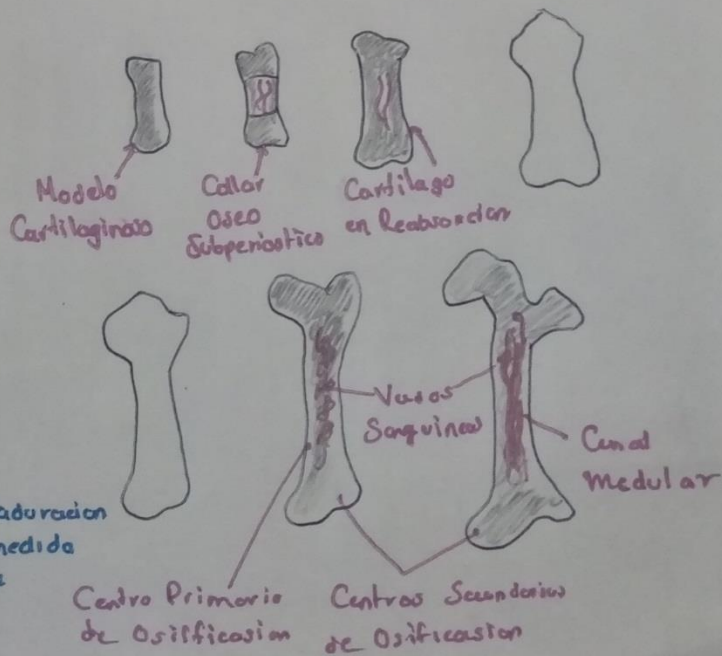 Modelo
Cartilaginoso
Collar
Oseo
Subperiostico
Cartilago
en Reabsorcion
Vasos
Sanguineos
Canal
Medular
aduracion
medida
Centro Primario
de Osifficasion
Centros Secundarios
de Osificasion